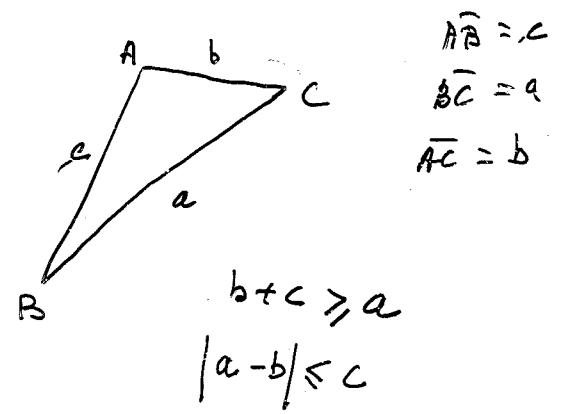 A
b
C
c
a
B
A̅B̅ = c
B̅C̅ = a
A̅C̅ = b
b + c ⩾ a
|a - b| ⩽ c